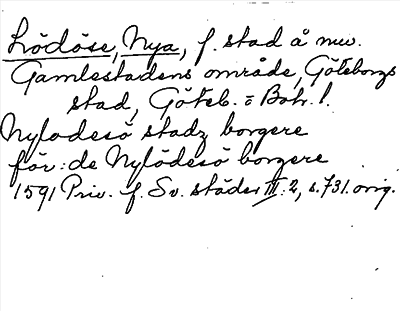 Lödöse, Nya, f. stad å nuv.
Gamlestadens område, Göteborgs
stad, Göteb. o Boh. l.
Nylodesö stadz borgere
för: de Nylödesö borgere
1591 Priv. f. Sv. städer III: 2, s. 731. orig.